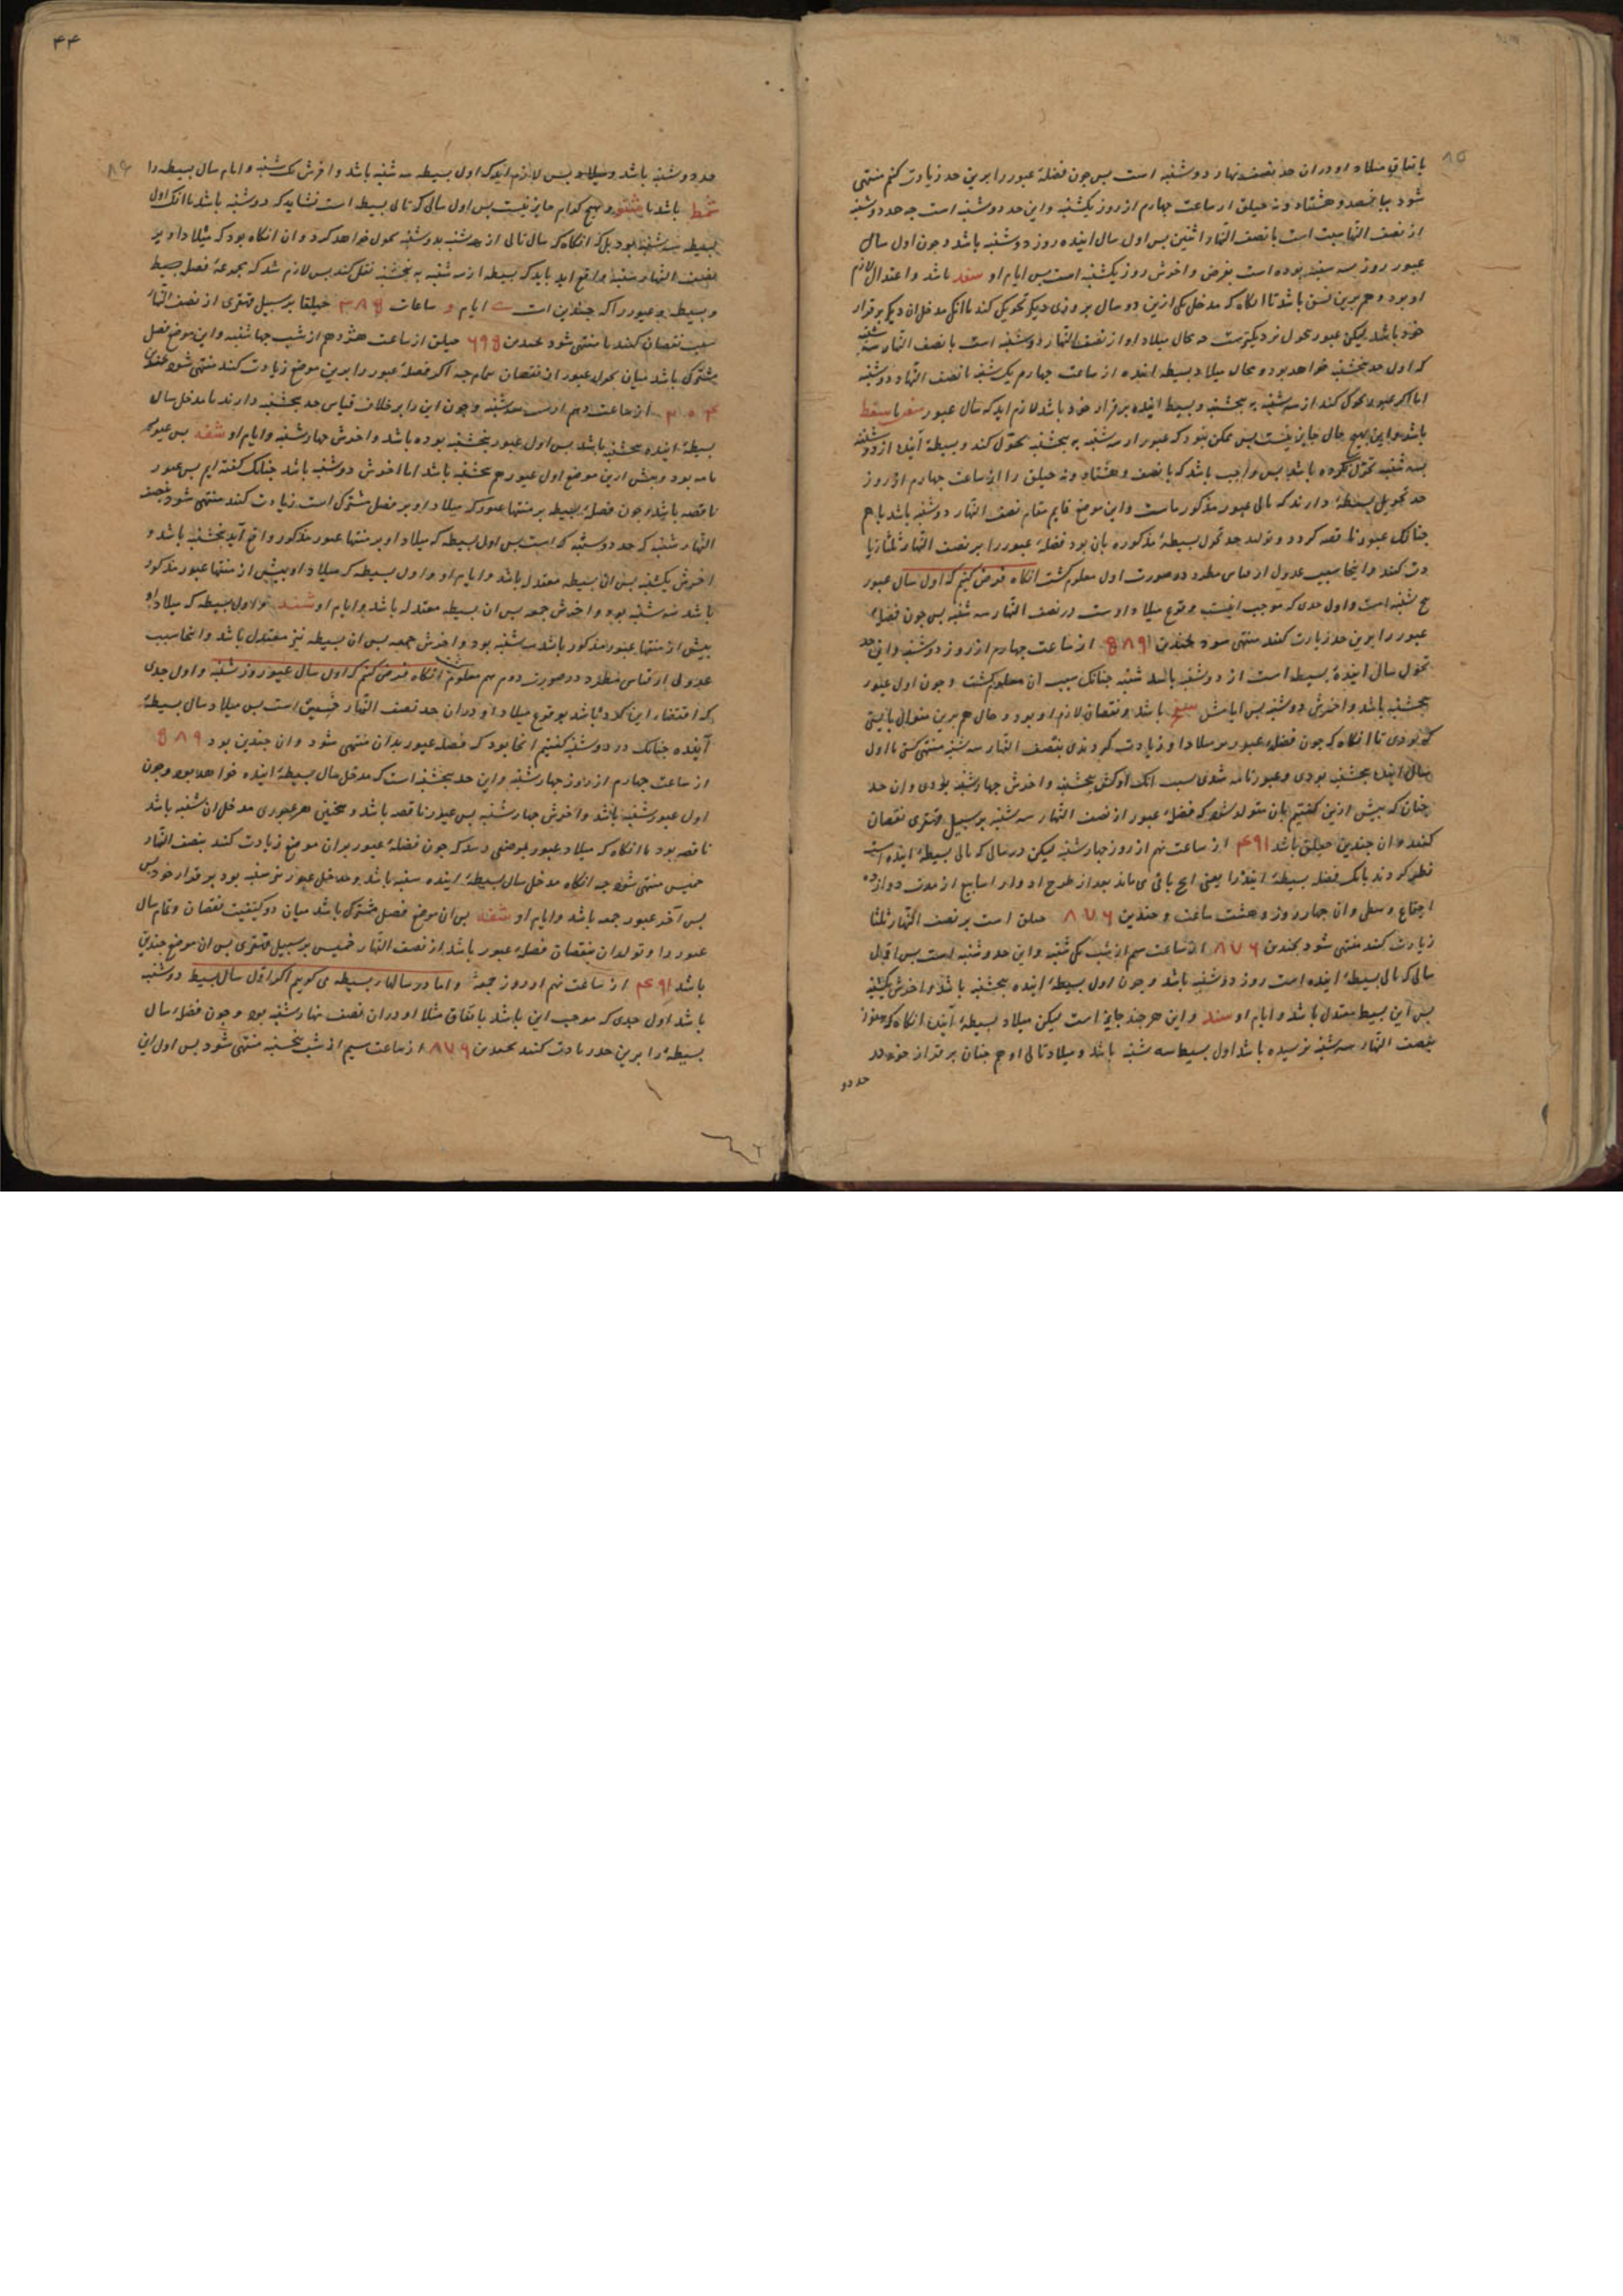 باتفاق میلاد او دران حد نصف نهار دوشنبه است بس جون فضلهٔ عبور را برین حد زیادت کنم منتهی
شود بپانصد و هشتاد ونه حیلق از ساعت چهارم از روز یکشنبه واین حد دوشنبه است جه حد دوشنبه
از نصف النهار سبت است تا نصف النهار اثنین بس اول سال اینده روز دوشنبه باشد وجون اول سال
عبور روز سه شنبه بوده است بفرض واخرش روز یکشنبه است بس ایام او سفد باشد واعتدال لازم
او بود وهم برین نسق باشد تا انکاه که مدخل یکی ازین دو سال بروزی دیکر تحویل کند باانک مدخل ان دیکر برقرار
خود باشد لیکن عبور بحول نزدیکترست جه بحال میلاد او از نصف النهار دوشنبه است تا نصف النهار سه شنبه
که اول حد بنجشنبه خواهد بود وبحال میلاد بسیطه اینده از ساعت چهارم یکشنبه تا نصف النهار دوشنبه
اما اکر عبور تحول کند از سه شنبه به بنجشنبه وبسیط اینده برقرار خود باشد لازم اید که سال عبور سفر یا سقط
باشد واین بهیچ حال جایز نیست بس ممکن نبود که عبور از سه شنبه به بنجشنبه تحول کند وبسیطهٔ آینده از دوشنبه
بسه شنبه تحول نکرده باشد بس واجب باشد که پانصد وهشتاد ونه حیلق را از ساعت چهارم از روز
حد تحویل بسیطهٔ دارند که تالی عبور مذکورماست واین موضع قایم مقام نصف النهار دوشنبه باشد با هم
جنانک عبور ناقصه کردد وتولد حد تحول بسیطهٔ مذکوره بان بود فضلهٔ عبور را بر نصف النهار ثلثا زیا
دت کنند واینجا سبب عدول از قیاس مطرد در صورت اول معلوم کشت انکاه فرض کنم که اول سال عبور
بنجشنبه است واول حدی که موجب اینست وقوع میلاد اوست در نصف النهار سه شنبه بس جون فضلهٔ
عبور را برین حد زیادت کنند منتهی شود بجندین ۵۸۹ از ساعت چهارم از روز دوشنبه واین حد
تحول سال ایندهٔ بسیطه است از دوشنبه باسه شنبه جنانک سبب ان معلوم کشت وجون اول عبور
بنجشنبه باشد واخرش دوشنبه بس ایامش باشد ونقصان لازم او بود وحال هم برین منوال بایستی
که بودی تا انکاه که جون فضلهٔ عبور بر میلاد او زیادت کردندی بنصف النهار سه شنبه منتهی کشتی تا اول
سال اینده بنجشنبه بودی وعبور تامه شدی سبب انک اولش بنجشنبه واخرش چهارشنبه بودی وان حد
جنان که بیش ازین کفتیم بان متولد شود که فضلهٔ عبور از نصف النهار سه شنبه بر سبیل قهقری نقصان
کنند وان جندین حیلق باشد ۴۹۱ از ساعت نهم از روز چهارشنبه لیکن در سالی که تالی بسیطهٔ اینده است
نظر کردند بانک فضله بسیطهٔ اینده را یعنی انچ باقی می ماند بعد از طرح ادوار اسابیع از مدت دوازده
اجتماع وسطی وان چهار روز وهشت ساعت وجندین ۸۷۶ حیلق است بر نصف النهار ثلثا
زیادت کنند منتهی شود بجندین ۸۷۶ از ساعت سیم از شب یکشنبه واین حد دوشنبه است بس اول
سالی که تالی بسیطهٔ اینده است روز دوشنبه باشد وجون اول بسیطهٔ اینده بنجشنبه باشد واخرش یکشنبه
بس این بسیط معتدل باشد وایام او سند واین هرجند جایز است لیکن میلاد بسیطهٔ اینده انکاه که هنوز
بنصف النهار سه شنبه نرسیده باشد اول بسیط سه شنبه باشد ومیلاد تالی او هم جنان برقرار خود در
حد دو
۴۴
حد دوشنبه باشد ومیلاد بس لازم اید که اول بسیطه سه شنبه باشد واخرش یکشنبه وایام سال بسیطه را
شمط باشد یا شنو وهیچ کدام جایز نیست بس اول سالی که تالی بسیط است نشاید که دوشنبه باشد باانک اول
بسیطه سه شنبه بود بل که انکاه که سال تالی از سه شنبه بدوشنبه تحول خواهد کرد وان انکاه بود که میلاد او بر
نصف النهار شنبه واقع اید باید که بسیطه از سه شنبه به بنجشنبه نقل کند بس لازم شد که مجموعهٔ فصل بسیط
وبسیطه وعبور را که جندین است ایام و ساعات ۳۸۵ حیلقا بر سبیل قهقری از نصف النهار
سبت نقصان کنند تا منتهی شود بجندین ۶۹۵ حیلق از ساعت هژدهم از شب چهارشنبه واین موضع فصل
مشترک باشد میان تحول عبور از نقصان بتمام جه اکر فضلهٔ عبور را برین موضع زیادت کنند منتهی شود بجندین
۲۰۴ از ساعت دهم از شب سه شنبه وجون این را بر خلاف قیاس حد بنجشنبه دارند تا مدخل سال
بسیطهٔ اینده بنجشنبه باشد بس اول عبور بنجشنبه بوده باشد واخرش چهارشنبه وایام او شفه بس عبور
تامه بود وبیش ازین موضع اول عبور هم بنجشنبه باشد اما اخرش دوشنبه باشد جنانک کفته ایم بس عبور
ناقصه باشد وجون فضلهٔ بسیطه بر منتها عبور که میلاد او بر فصل مشترک است زیادت کنند منتهی شود بنصف
النهار شنبه که حد دوشنبه است بس اول بسیطه که میلاد او بر منتها عبور مذکور واقع آید بنجشنبه باشد و
اخرش یکشنبه بس ان بسیطه معتدل باشد وایام او واول بسیطه که میلاد او بیش از منتها عبور مذکور
باشد سه شنبه بود واخرش جمعه بس ان بسیطه معتدله باشد وایام او شند واول بسیطه که میلاد او
بیش از منتها عبور مذکور باشد سه شنبه بود واخرش جمعه بس ان بسیطه نیز معتدل باشد واینجا سبب
عدول از قیاس مطرد در صورت دوم هم معلوم شد انکاه فرض کنم که اول سال عبور روز شنبه واول حدی
که اقتضاء این کند باشد بوقوع میلاد او دران حد نصف النهار خمیس است بس میلاد سال بسیطهٔ
آینده جنانک در دوشنبه کفتیم انجا بود که فضله عبور بدان منتهی شود وان جندین بود ۵۸۹
از ساعت چهارم از روز چهارشنبه واین حد بنجشنبه است که مدخل سال بسیطهٔ اینده خواهد بود وجون
اول عبور شنبه باشد واخرش چهارشنبه بس عبور ناقصه باشد وهمچنین هر عبوری مدخل ان شنبه باشد
ناقصه بود تا انکاه که میلاد عبور بموضعی رسد که جون فضلهٔ عبور بران موضع زیادت کنند بنصف النهار
خمیس منتهی شود جه انکاه مدخل سال بسیطهٔ اینده شنبه باشد ومدخل عبور نیز شنبه بود برقرار خود بس
بس آخر عبور جمعه باشد وایام او شفه بس ان موضع فصل مشترک باشد میان دو کیفیت نقصان وتمام سال
عبور را وتولد ان بنقصان فضلهٔ عبور باشد از نصف النهار خمیس بر سبیل قهقری بس ان موضع جندین
باشد ۴۹۱ از ساعت نهم از روز جمعه واما در سالهاء بسیطه می کویم اکر اول سال بسیط دوشنبه
باشد اول حدی که موجب این باشد باتفاق مثلا او دران نصف نهار شنبه بود وجون فضلهٔ سال
بسیطهٔ را برین حد زیادت کنند بجندین ۸۷۶ از ساعت سیم از شب بنجشنبه منتهی شود بس اول این